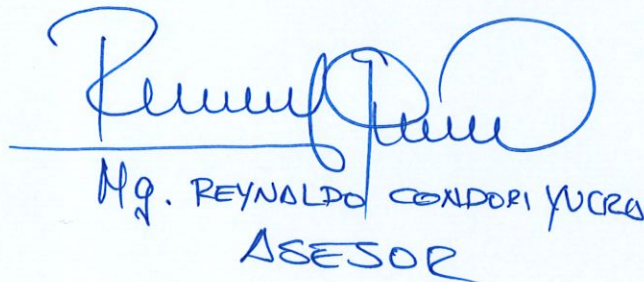 Mg. REYNALDO CONDORI YUCRA
ASESOR